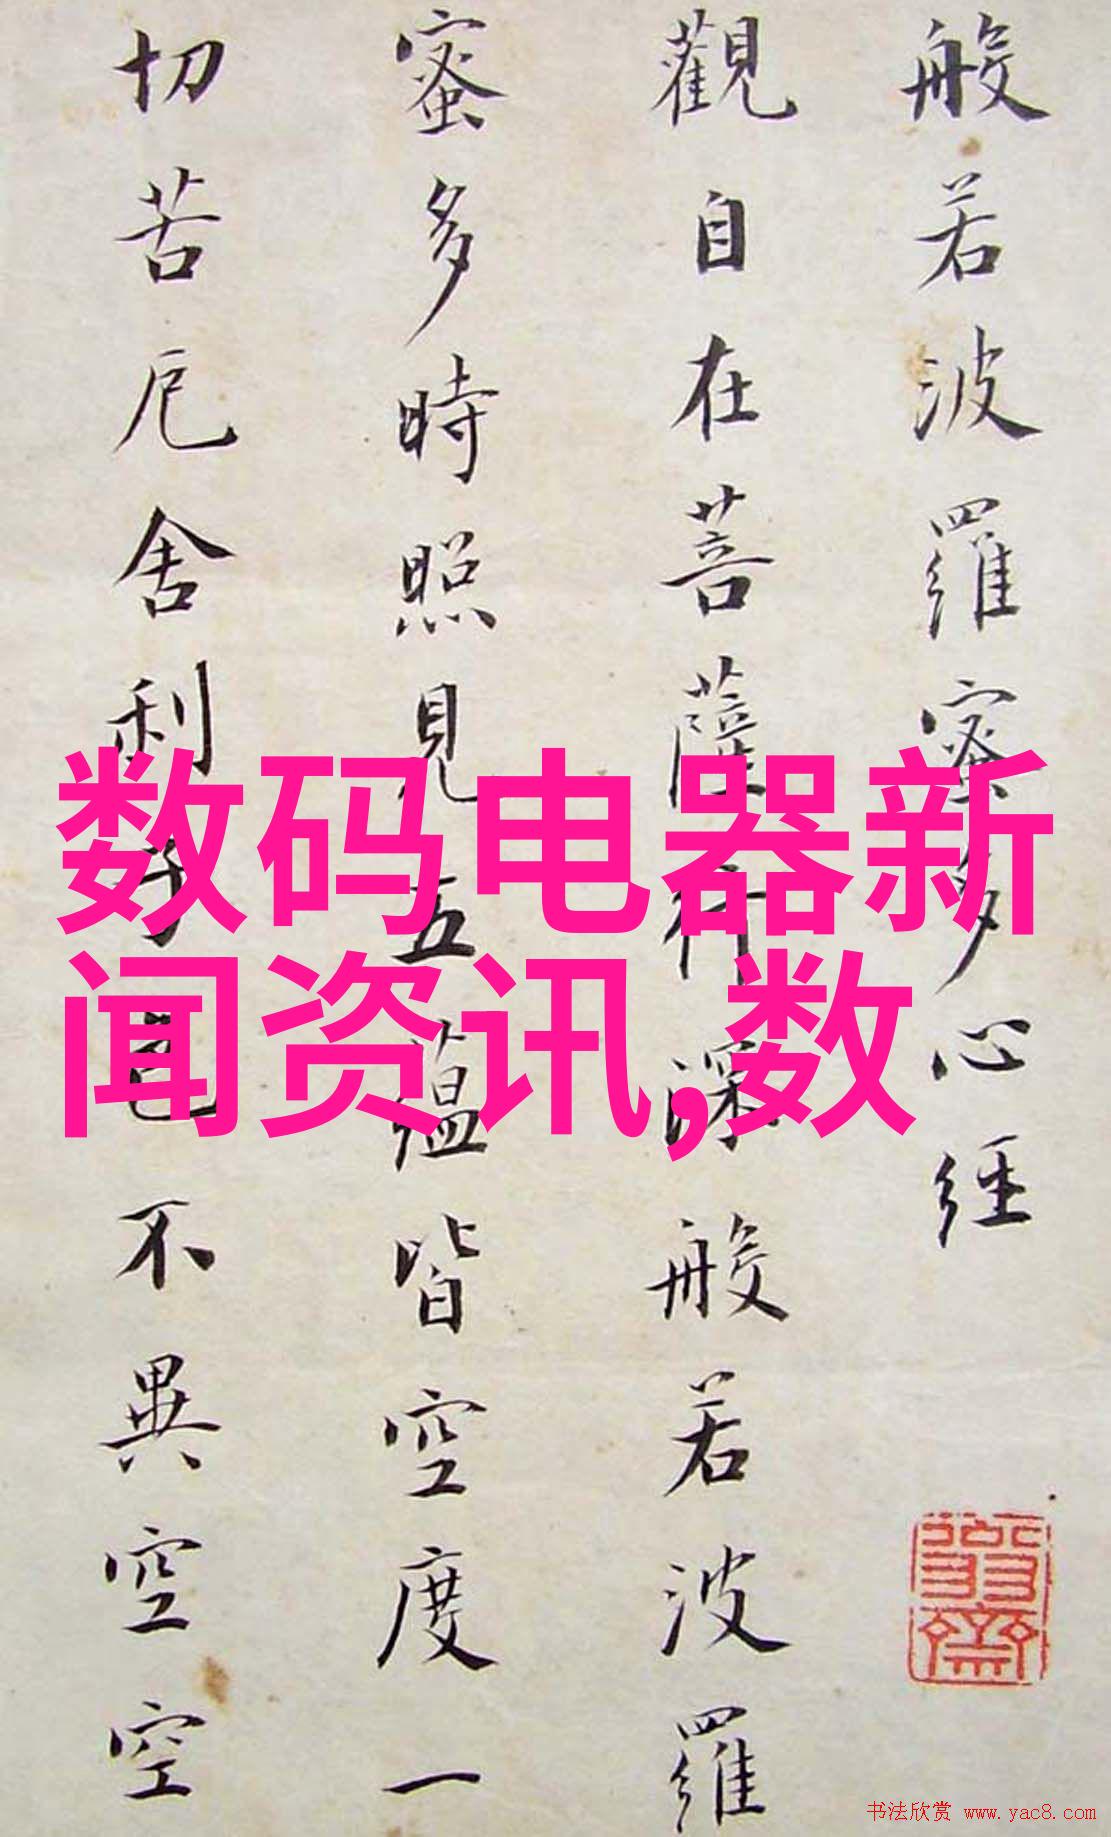 般若波羅蜜多心經
觀自在菩薩行深般若波羅
蜜多時照見五蘊皆空度一
切苦厄舍利子色不異空空
数码电器新
闻资讯,数
书法欣赏 www.yac8.com